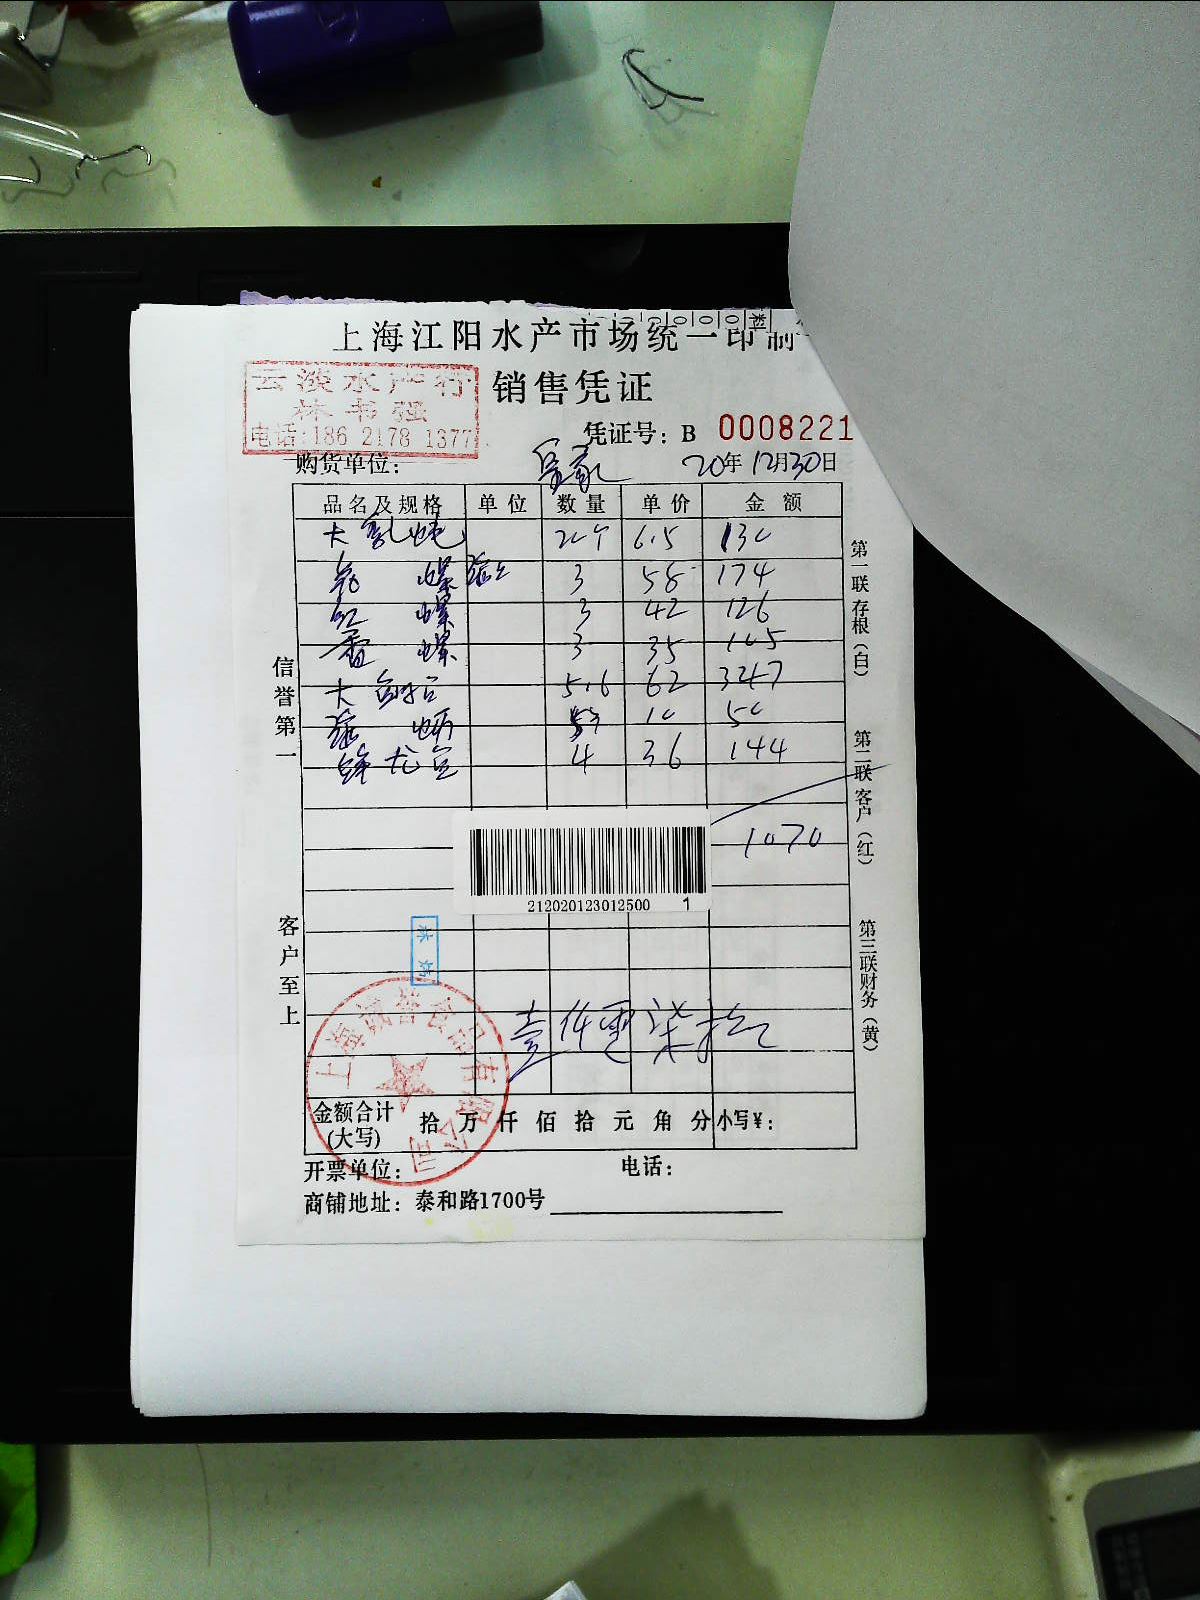 上海江阳水产市场统一印制
云淡水产行
林书强
电话:186 2178 1377
销售凭证
凭证号: B 0008221
购货单位:
20年12月30日
品名及规格 单位 数量 单价 金额
大 6.5 130
螺 3 58 174
红螺 3 42 126
香螺 3 35 105
大鲍 5.6 62 347
10 50
龙 4 36 144
1070
212020123012500 1
壹仟零柒拾
信誉第一
客户至上
第一联存根(白)
第二联客户(红)
第三联财务(黄)
上海诚誉食品有限公司
金额合计(大写) 拾 万 仟 佰 拾 元 角 分 小写¥:
开票单位: 电话:
商铺地址: 泰和路1700号